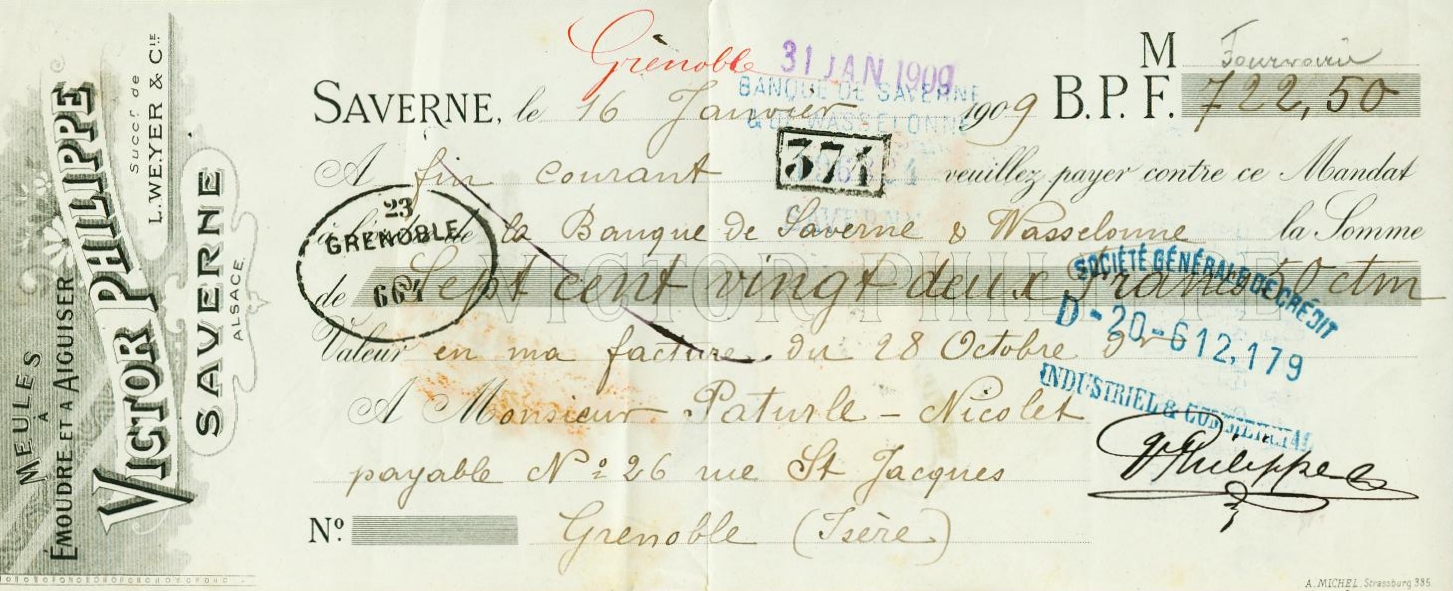 MEULES
À
ÉMOUDRE ET A AIGUISER
VICTOR PHILIPPE
Succr. de
L. WEYER & CIE
SAVERNE
ALSACE.
Grenoble 31 JAN 1909
M
SAVERNE, le 16 Janvier 1909 B.P.F. 722,50
BANQUE DE SAVERNE
& DE WASSELONNE
SAVERNE
A fin courant veuillez payer contre ce Mandat
374
la Banque de Saverne & Wasselonne la Somme
23
GRENOBLE
664
de Sept cent vingt deux francs 50 ctm
VICTOR PHILIPPE
SOCIÉTÉ GÉNÉRALE DE CRÉDIT
D-20-612,179
INDUSTRIEL & COMMERCIAL
Valeur en ma facture du 28 Octobre
A Monsieur Paturle - Nicolet
payable No 26 rue St Jacques
Philippe
No. Grenoble (Isère)
A. MICHEL, Strassburg 335.